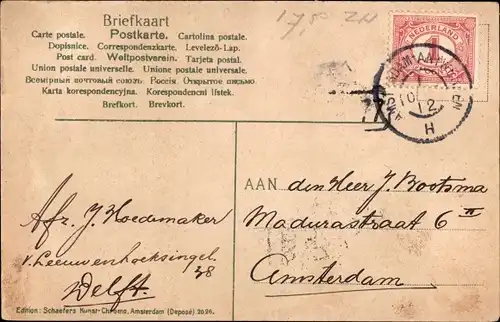 17,50 ZH
Briefkaart
Carte postale. Postkarte. Cartolina postale.
Dopisnice. Correspondenzkarte. Levelező-Lap.
Post card. Weltpostverein. Tarjeta postal.
Union postale universelle. Unione postale universale.
Всемірный почтовый союзъ. Россія. Открытое письмо.
Karta korespondencyjna. Korespondenční lístek.
Brefkort. Brevkort.
NEDERLAND
1
10
12
H
AAN den Heer J. Bootsma
Madurastraat 6 II
Amsterdam
Afz. J. Hoedemaker
v. Leeuwenhoeksingel
38
Delft.
Edition: Schaefers Kunst-Chromo, Amsterdam (Deposé) 2096.